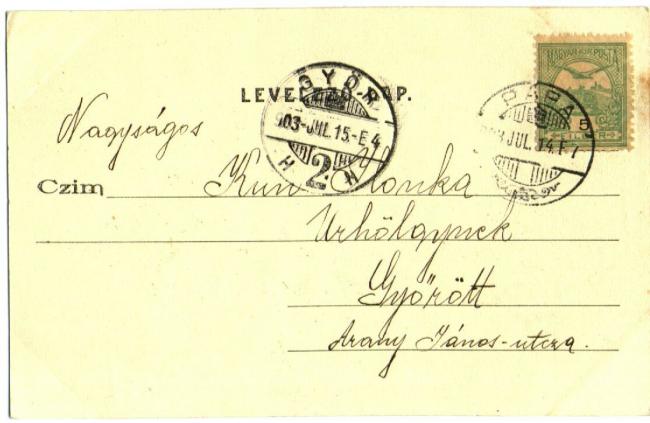 LEVELEZŐ-LAP.
MAGYAR KIR. POSTA
5
FILLÉR
GYŐR
903-JUL.15.-E4
H 2 H
PÁPA
903 JUL.14.F7
Nagyságos
Czim Kun Ilonka
Úrhölgynek
Győrött
Arany János-utcza.